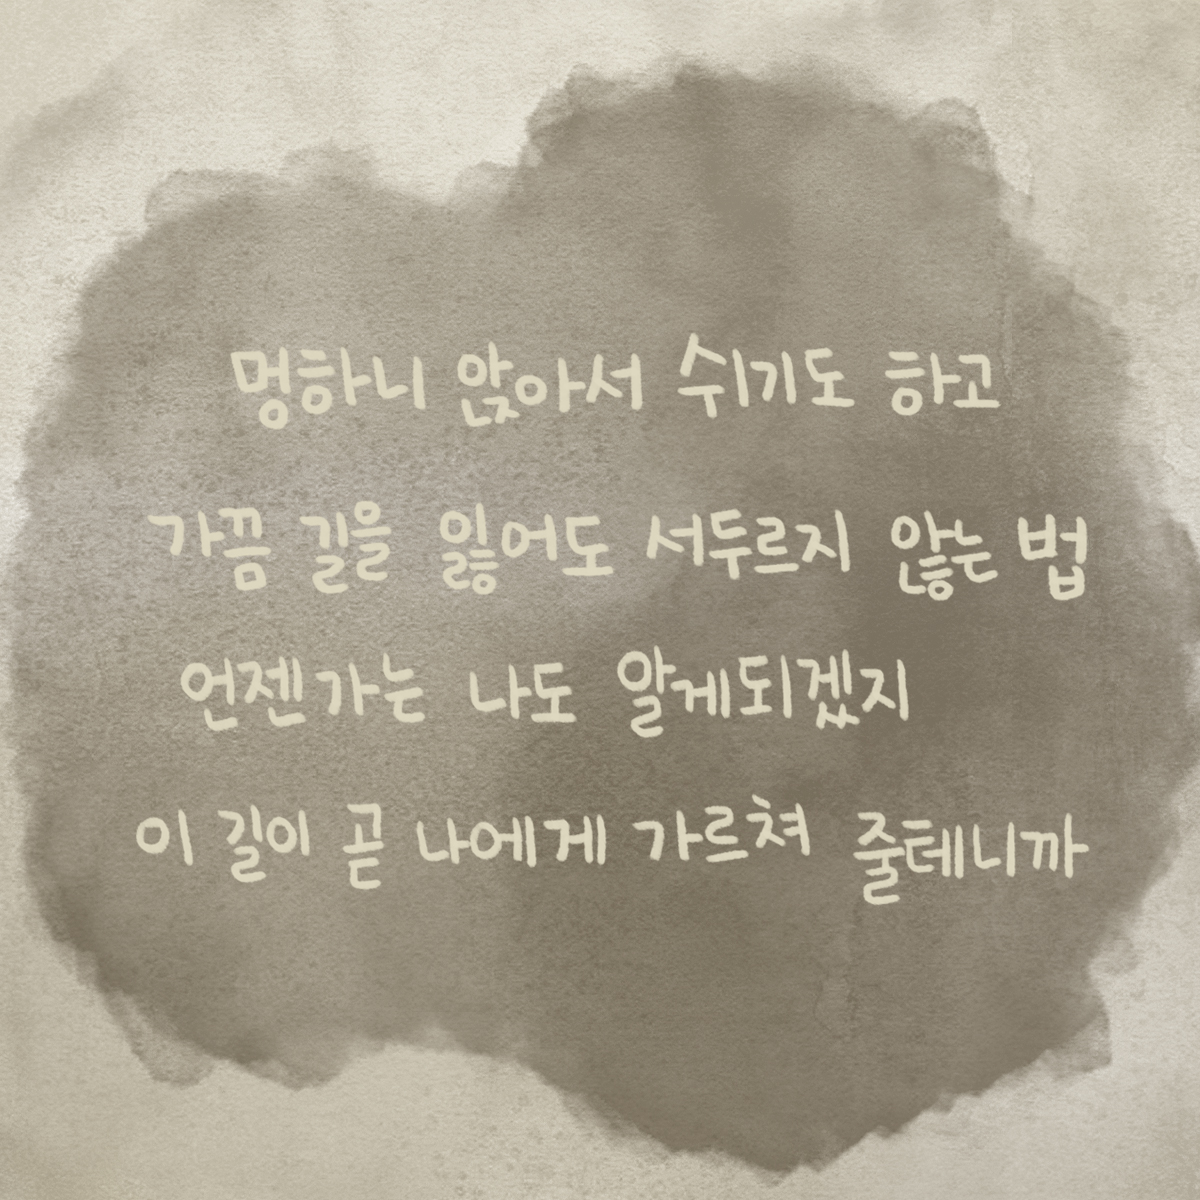 멍하니 앉아서 쉬기도 하고
가끔 길을 잃어도 서두르지 않는 법
언젠가는 나도 알게되겠지
이 길이 곧 나에게 가르쳐 줄테니까